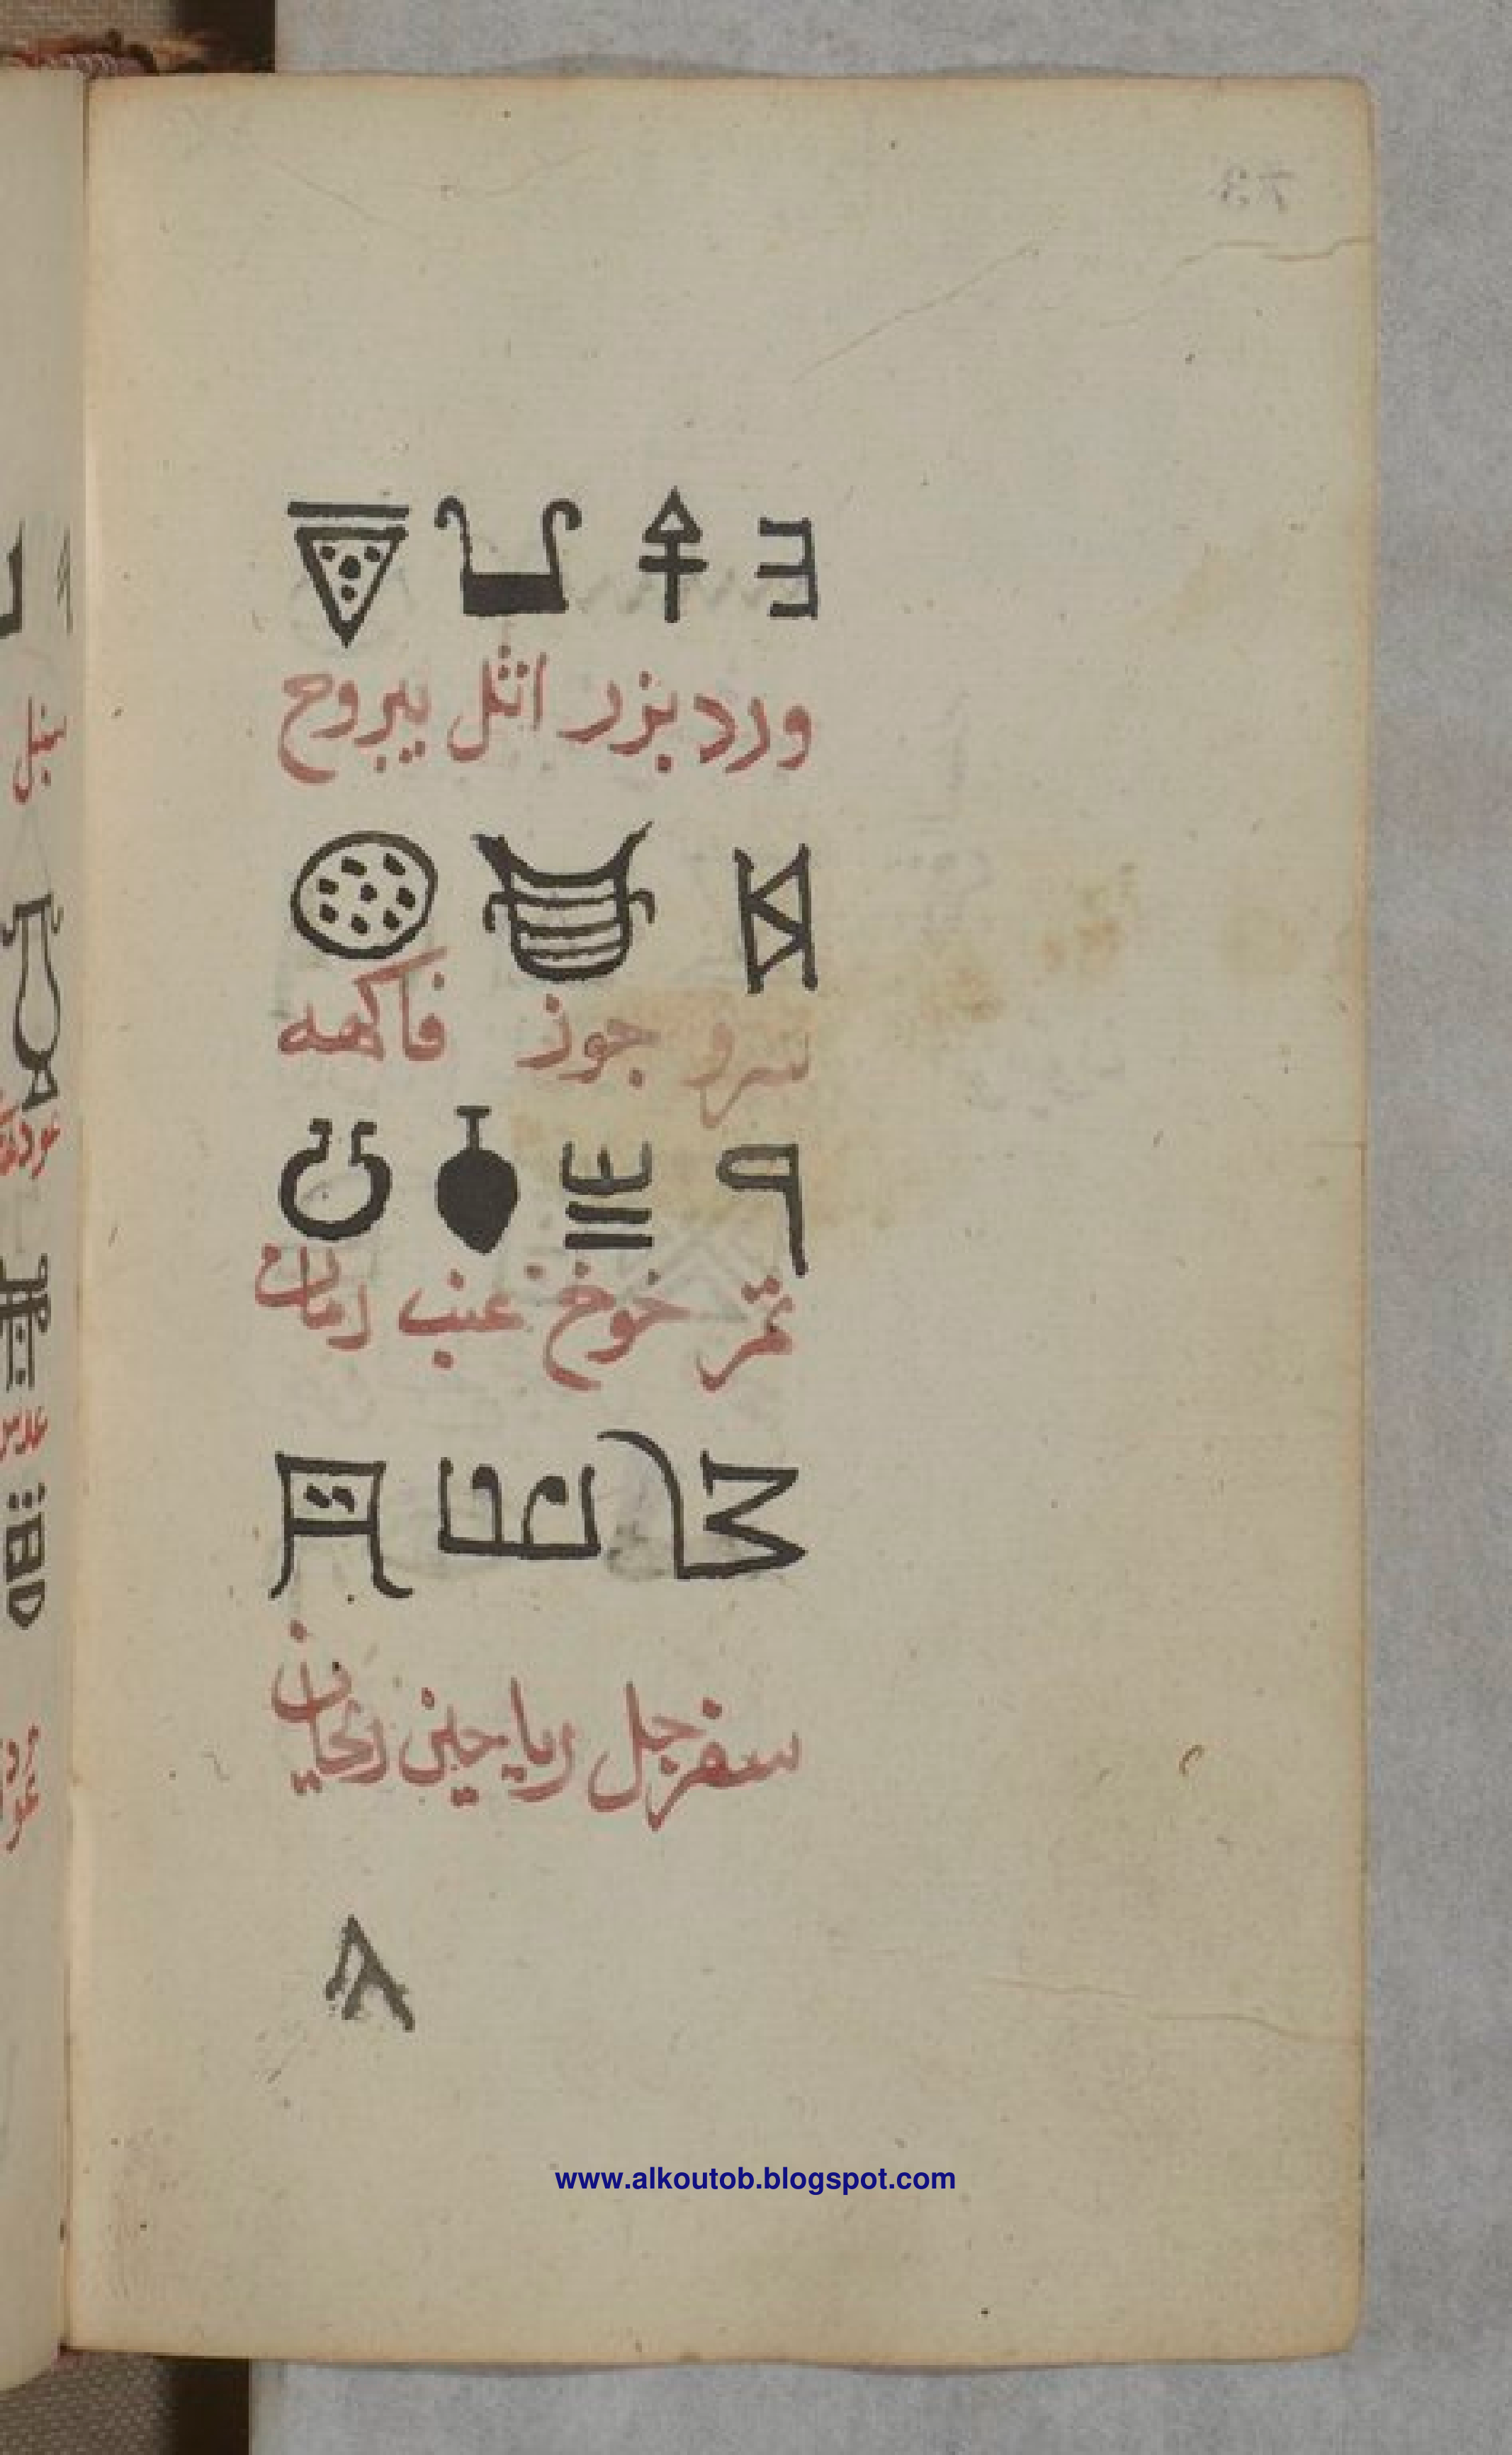 ورد بزر اثل يبروح
سرو جوز فاكهه
تمر خوخ عنب رمان
سفرجل رياحين ريحان
www.alkoutob.blogspot.com